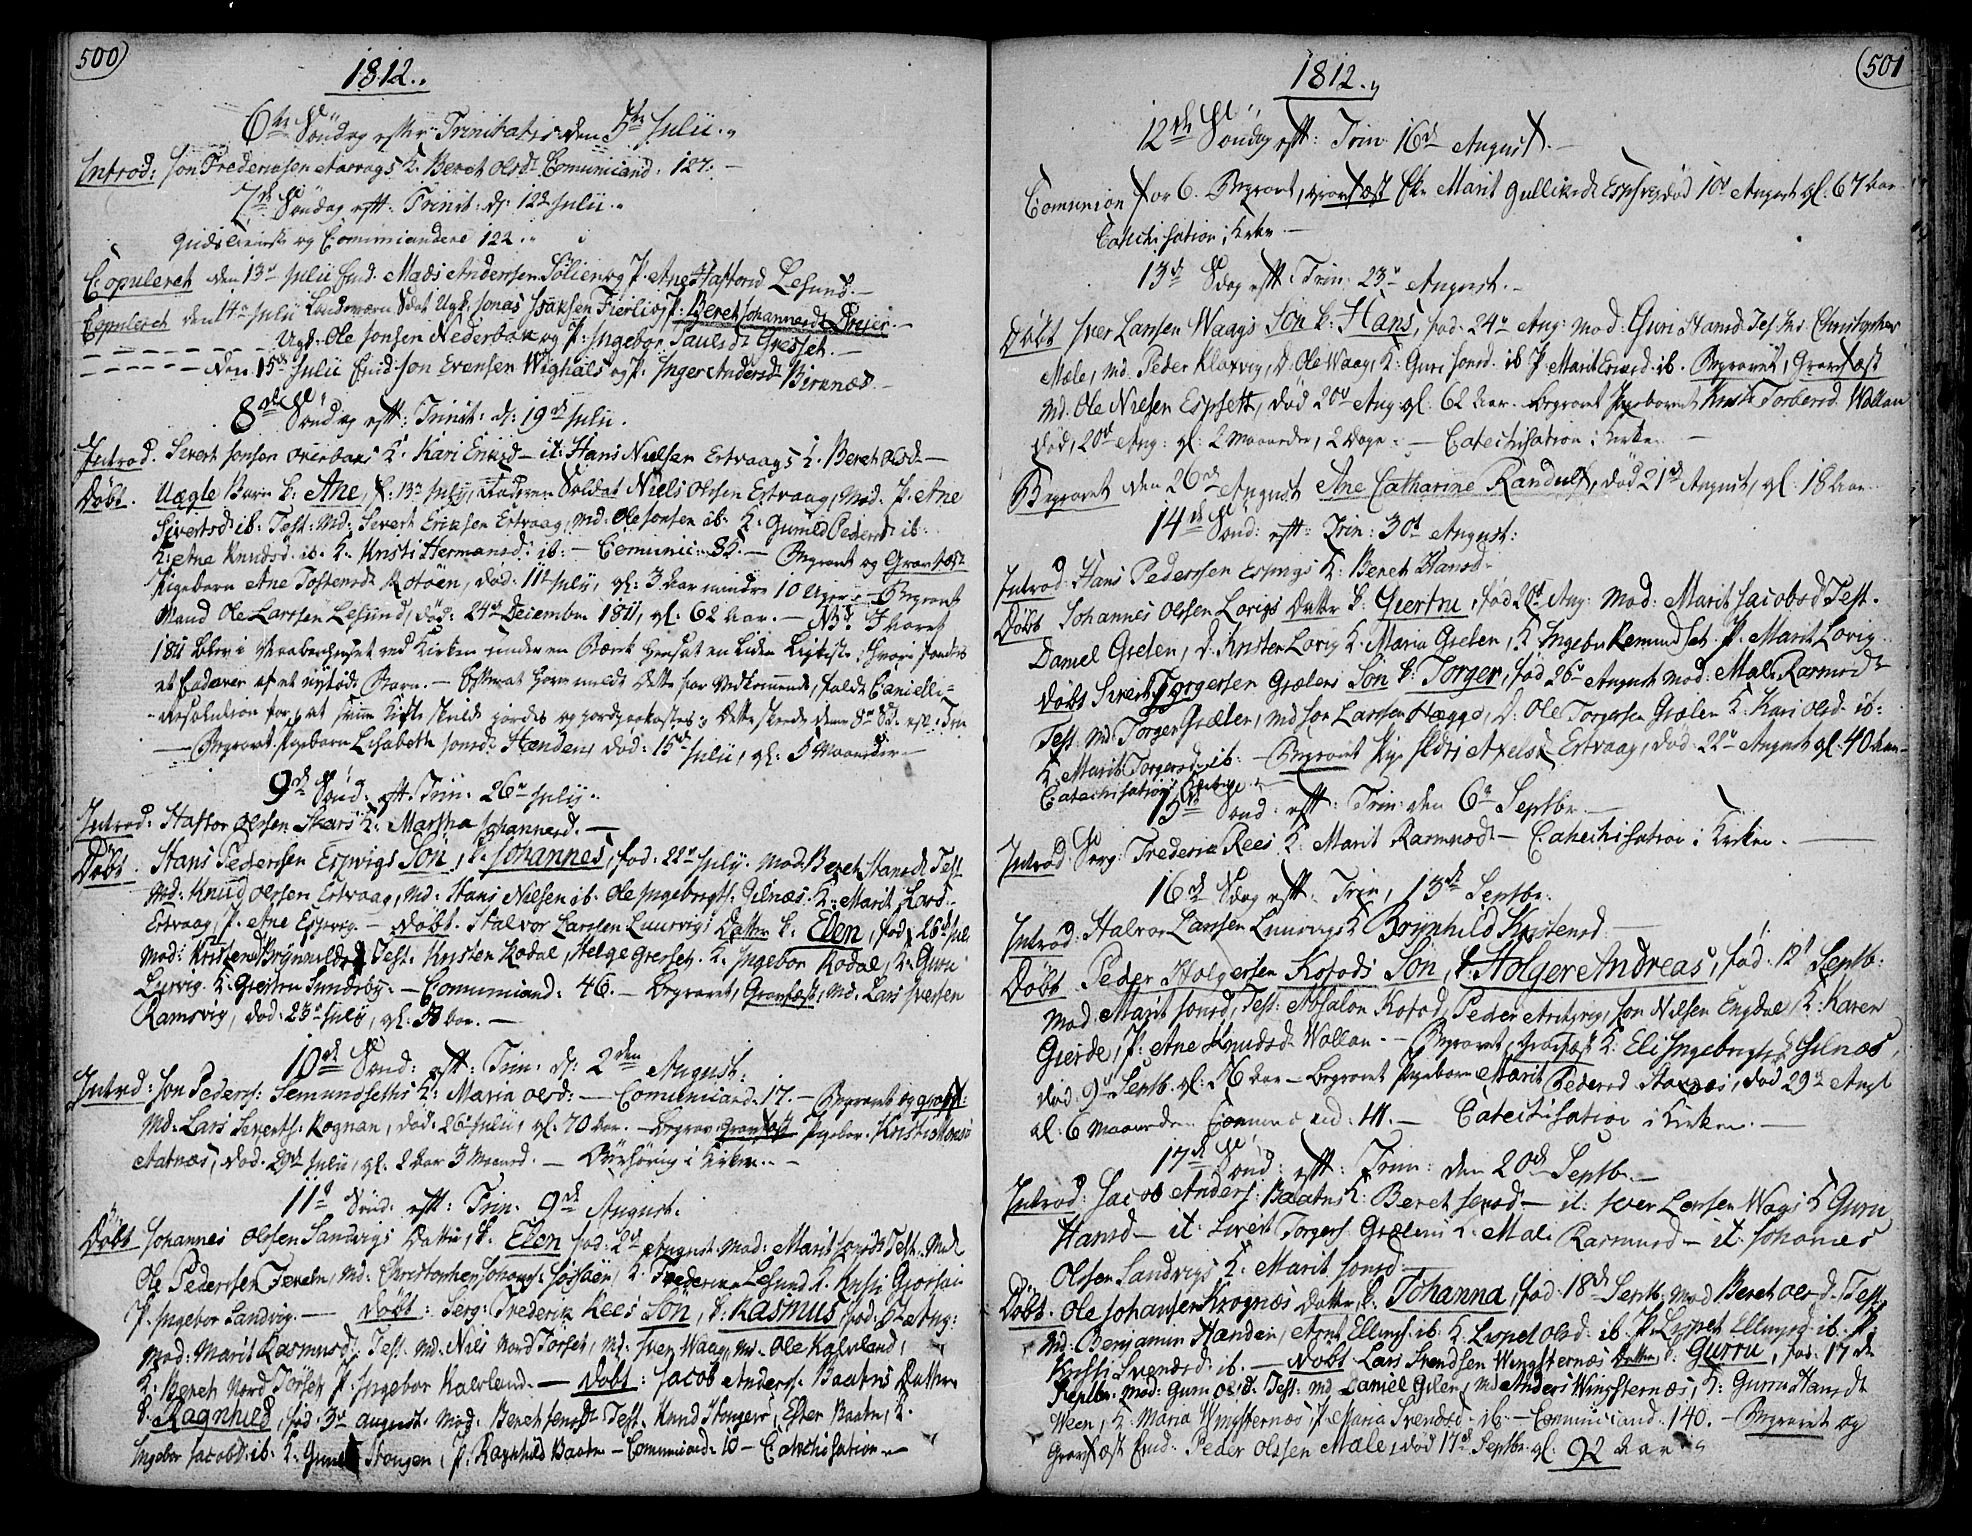 500
1812.
6te Söndag efter Trinitatis den 5te Julii.
Introd: Jon Fredericksen Aarvogs K. Beret Olsd. Comuniciand. 127.
7de Söndag eft: Trinit: d: 12te Julii.
og Comuniciandere 122.
Copuleret den 13de Julii Enk. Mads Andersen Sölien og P. Ane Haftorsd Lesund.
Copuleret den 14de Julii Soldat Ugk. Jonas Isaksen Fierli og P: Beret Johannesdt Dreier.
Ugk. Ole Jonsen Nederboe og P. Ingebor Paulsdt Gresset.
den 15de Julii Enk: Jon Evensen Wighals og P. Inger Andersdt Birknæs
8de Söndag eft: Trinit: d: 19de Julii.
Introd. Sivert Jonsen K: Kari Ericsd - it: Hans Nielsen Ertvaags K: Beret Olsdt
Döbt. Uægte Barn k: Ane, f: 13de July, Faderen Soldat Niels Olsen Ertvaag, Mod. P. Ane
Sivertsdt ib: Test: Md: Sivert Eriksen Ertvaag, Md. Ole Jonsen ib. K: Gunild Pedersdt ib.
K: Ane Knudsd. ib. K. Kristi Hermansd: ib: - Comunic: 82. - Begravet og Gravfæst
Pigebarn Ane Tostensdt Rotöen, död: 11te July, gl: 3 Aar mindre 10 Uger - Begravet
Mand Ole Larssen Lesund, död: 24de December 1811, gl: 62 Aar. - NB: I Aaret
1811 blev i Vaabenhuset ved Kirken under en Bænk hensat en liden Ligkiste, hvori fandtes
et Cadaver af et nyfödt Barn. - Efterat have meldt dette for Vedkommende, faldt Cancelli-
-Resolution for, at Kiste skulde jordes og jordpaakastes; Dette skeede denne 8de Sd. eft. Trin
- Begravet Pigebarn Lisabeth Jonsd: Hændens död: 15de Julii, gl: 5 Maaneder
9de Sönd: eft. Trin: 26de July.
Introd: Hafter Olssen Skars K: Martha Johannesd.
Döbt. Hans Pederssen Espvigs Sön, k: Johannes, föd: 22de July. Mod: Beret Hansdt Test
Md: Knud Olssen Ertvaag, Md: Hans Nielsen ib. Ole Ingebregts: Jilnæs. K: Marit Larsd
Ertvaag, P. Ane Espvig. - Döbt. Halvor Larssen Luurvigs Datter k: Elen, föd 26de Juli
Mod: Test. Kristen Rodal, Helge Gresset. K. Ingebor Rodal, K: Guru
Lurvig. K. Giertru Sundsby. - Comuniciand: 46. - Begravet, Gravfæst, Md. Lars Iversen
Ramsvig, död: 23de July, gl: Aar.
10de Sönd: eft: Trin: d: 2den August.
Introd: Jon Peders: Semundseths K: Maria Olsd: - Comuniciand: 17. - Begravet og gravf:
Md: Lars Siverts: Rognan, död: 26de Julii, gl: 70 Aar. - Begrav. Gravfæst Pigebar. Kristi Monsd
Aatnæs, död. 29de Julii, gl. 2 Aar 3 Maaned. - i Kirken.
11te Sönd: eft: Trin. 9de August.
Döbt Johannes Olssen Sandvigs Datter, k. Elen föd: 2de August. Mod: Marit Jonsdt Test. Md:
Ole Pederssen Md: Christopher Johans: K: Frederica Lesund K. Kristi
P. Ingebor Sandvig. - Döbt: Serg: Frederik Rees Sön, k: Rasmus, föd: Aug:
Mod: Marit Rasmusdt. Test. Md. Niels Nord Torset, Md: Iver Waag, Md. Ole Kalvland,
K: Beret Nord Torset, P. Ingebor Kalvland. - Döbt: Jacob Anders: Baatnes Datter
k. Ragnhild, föd: 3de August. Mod: Beret Jensdt. Test. Knud Stangen, Efter Baatn, K.
Ingebor Jacobsdt ib: K. Stangen, P. Ragnhild Baatn - Comuniciand: 10 - Catechisation
501
1812.
12te Söndag eft: Trin: 16de August.
Comunion for 6. Begravet, gravfæst Marit Gulliksdt Espset, död 10de August gl: 67 Aar
Catechisation i Kirken
13de Sdag eft: Trin: 23de August.
Döbt Iver Larssen Waags Sön k: Hans, föd: 24de Aug: Mod: Guri Hansd: Tes: Md: Christopher
Mæle, Md. Peder Kloxvig, D. Ole Waag, K: Guri Jonsd. ib P. Marit Eriesd. ib. Begravet, Gravfæst
Md. Ole Nilsen Espsett, död 20de Aug gl. 62 Aar. Begravet Pigebarnet Torbersd. Wollan
död, 20de Aug: gl: 2 Maaneder, 2 Dage. - Catechisation i Kirken
Begravet den 26de August Ane Catharine Randulf, död 21de August, gl: 18 Aar
14de Sönd: eft: Trin: 30te August:
Introd: Hans Pederssen Espvigs K: Beret Hansd.
Döbt Johannes Olssen Lorigs Datter k: Giertru, föd 26de Aug: Mod: Marit Jacobsd Test.
Daniel Gielen, D. Kristen Lovig K. Maria Gielen, K. Ingebor Remundset. P. Marit Lovig
Döbt Sivert Torgersen Gielens Sön k. Torger, föd 26de August Mod: Mali Rasmusd
Test. Md Torger Gielen, Md Jon Larssen Hægge, D: Ole Torgersen Gielen K: Kari Olsd ib:
K. Marit Torgersd. ib. - Begravet Pige Sidri Axelsd Ertvaag, död: 22de August gl. 40 Aar
Catechisation
15de Sönd: eft: Trin: den 6te Septbr.
Introd: Serg: Frederic Rees K: Marit Rasmusdt. - Catechisation i Kirken.
16de Sdag eft: Trin, 13de Septbr.
Introd: Halvor Larssen Luurvigs K Brynhild Kristensd.
Döbt Peder Holgersen Kofods Sön, k. Holger Andreas, föd: 12te Septb.
Mod. Marit Jonsd, Test: Absalon Kofod, Peder Jon Nilsen Engdal, K: Karen
Gierde, P: Ane Knudsd. Wollan. - Begravet, Gravfæst K: Eli Ingebrigtsd Jilnæs,
död. 9de Septb. gl: 56 Aar - Begravet Pigebarn Marit Pedersd Stavnæs, död 29de Aug
gl: 6 Maaneder Comuniciand: 41. - Catechisation i Kirken.
17de Sönd: eft: Trin: den 20de Septbr.
Introd: Jacob Anders: Baatns K: Beret Jensd - it: Iver Larssen Wags K Guru
Hansd - it: Sivert Torgers: Gielens K: Mali Rasmusd - it: Johannes
Olssen Sandvigs K: Marit Jonsd
Döbt. Ole Johansen Krognæs Datter k: Johanna, föd 18de Septb. Mod Beret Olsd. Test.
Md: Benjamin Handen, Arnt Ellings: ib: K. Lispet Olsd: ib. P: Lispet Ellingsd ib. P:
Kristi Svendsd: ib. - Döbt Lars Svendsen Wingsternæs Datter k: Gurru, föd. 17de
Septbr. Mod: Guru Olsd. Test: Md Daniel Gilen, Md Anders Wingsternæs, K: Gurru Hansdt
Ween, K: Maria Wingsternæs, P. Maria Svendsd. ib. - Comuniciand: 140. - Begravet og
Gravfæst Enk: Peder Olssen Mæle, död 17de Septbr. gl: 92 Aar